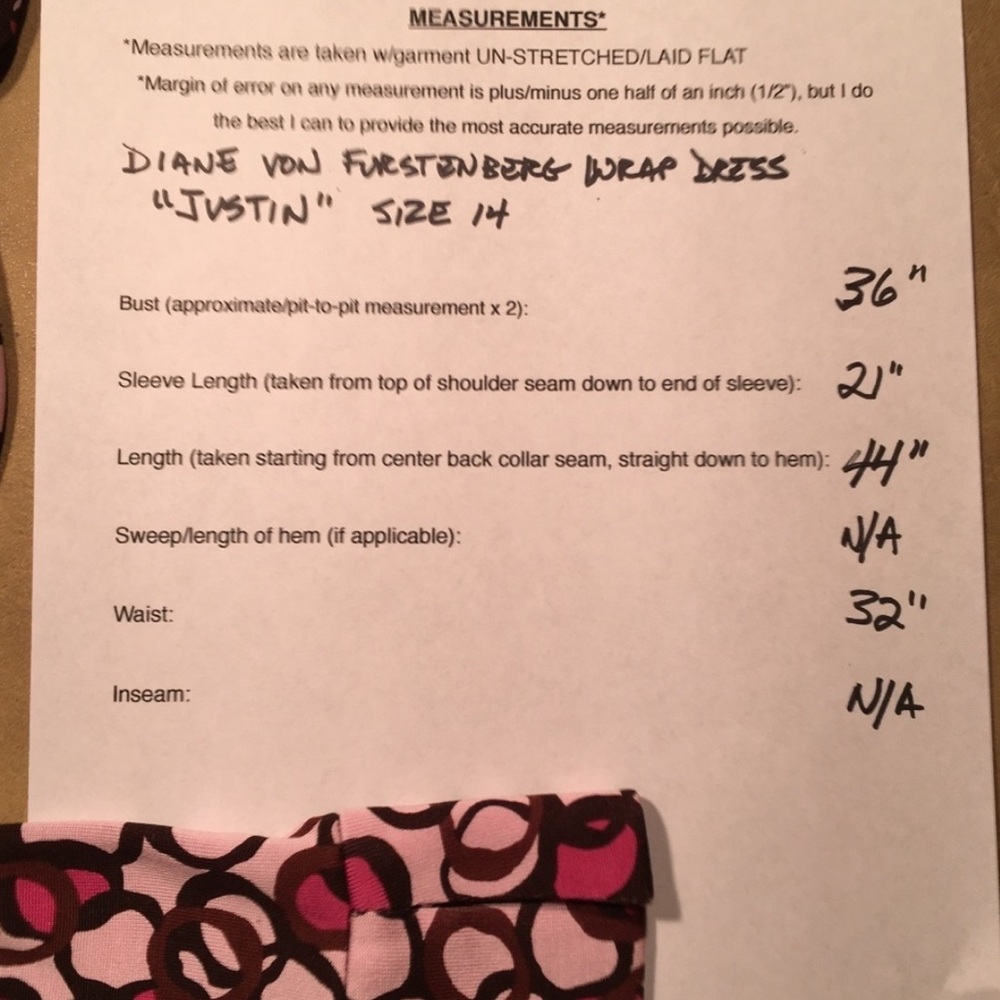 MEASUREMENTS*
*Measurements are taken w/garment UN-STRETCHED/LAID FLAT
*Margin of error on any measurement is plus/minus one half of an inch (1/2"), but I do
the best I can to provide the most accurate measurements possible.
DIANE VON FURSTENBERG WRAP DRESS
"JUSTIN" SIZE 14
Bust (approximate/pit-to-pit measurement x 2): 36"
Sleeve Length (taken from top of shoulder seam down to end of sleeve): 21"
Length (taken starting from center back collar seam, straight down to hem): 44"
Sweep/length of hem (if applicable): N/A
Waist: 32"
Inseam: N/A